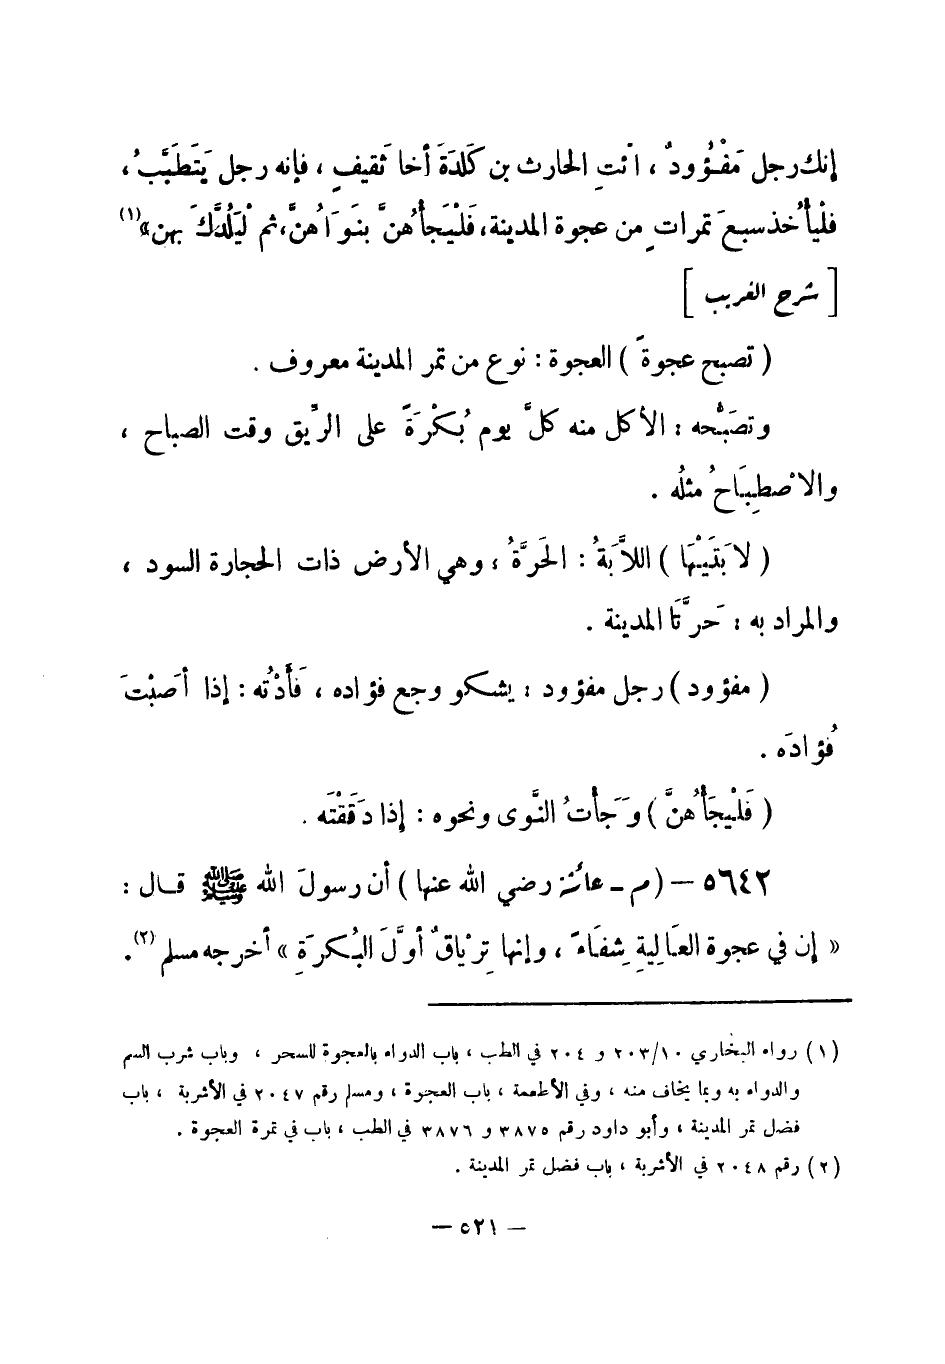 إنك رجل مَفْؤُودٌ ، ائتِ الحارث بن كَلَدَةَ أخا ثَقيفٍ ، فإنه رجل يَتَطَبَّبُ ،
فلْيأْخُذ سبعَ تمرات من عجوة المدينة، فَلْيَجأْهُنَّ بنَوَاهُنَّ، ثم لْيَلُدَّكَ بهن» (١)
[ شرح الغريب ]
( تصبح عجوةً ) العجوة : نوع من تمر المدينة معروف .
وتصَبُّحه : الأكل منه كلَّ يوم بُكْرَةً على الرِّيق وقت الصباح ،
والاصْطِبَاحُ مثلُه .
( لابَتَيْهَا ) اللاَّبَةُ : الحَرَّةُ ، وهي الأرض ذات الحجارة السود ،
والمراد به : حَرَّتَا المدينة .
( مفؤود ) رجل مفؤود : يشكو وجع فؤاده ، فَأَدْتُه : إذا أصَبْتَ
فُؤادَه .
( فَلْيجَأْهُنَّ ) وَجَأتُ النَّوى ونحوه : إذا دَقَقْتَه .
٥٦٤٢ – (م - عائشة رضي الله عنها ) أن رسولَ الله ﷺ قال :
« إن في عجوة العَالِيةِ شِفَاءً ، وإنها تِرْيَاقٌ أوَّلَ البُكرَةِ » أخرجه مسلم (٢).
(١) رواه البخاري ٢٠٣/١٠ و ٢٠٤ في الطب ، باب الدواء بالعجوة للسحر ، وباب شرب السم
والدواء به وبما يخاف منه ، وفي الأطعمة ، باب العجوة ، ومسلم رقم ٢٠٤٧ في الأشربة ، باب
فضل تمر المدينة ، وأبو داود رقم ٣٨٧٥ و ٣٨٧٦ في الطب ، باب في تمرة العجوة .
(٢) رقم ٢٠٤٨ في الأشربة ، باب فضل تمر المدينة .
– ٥٢١ –